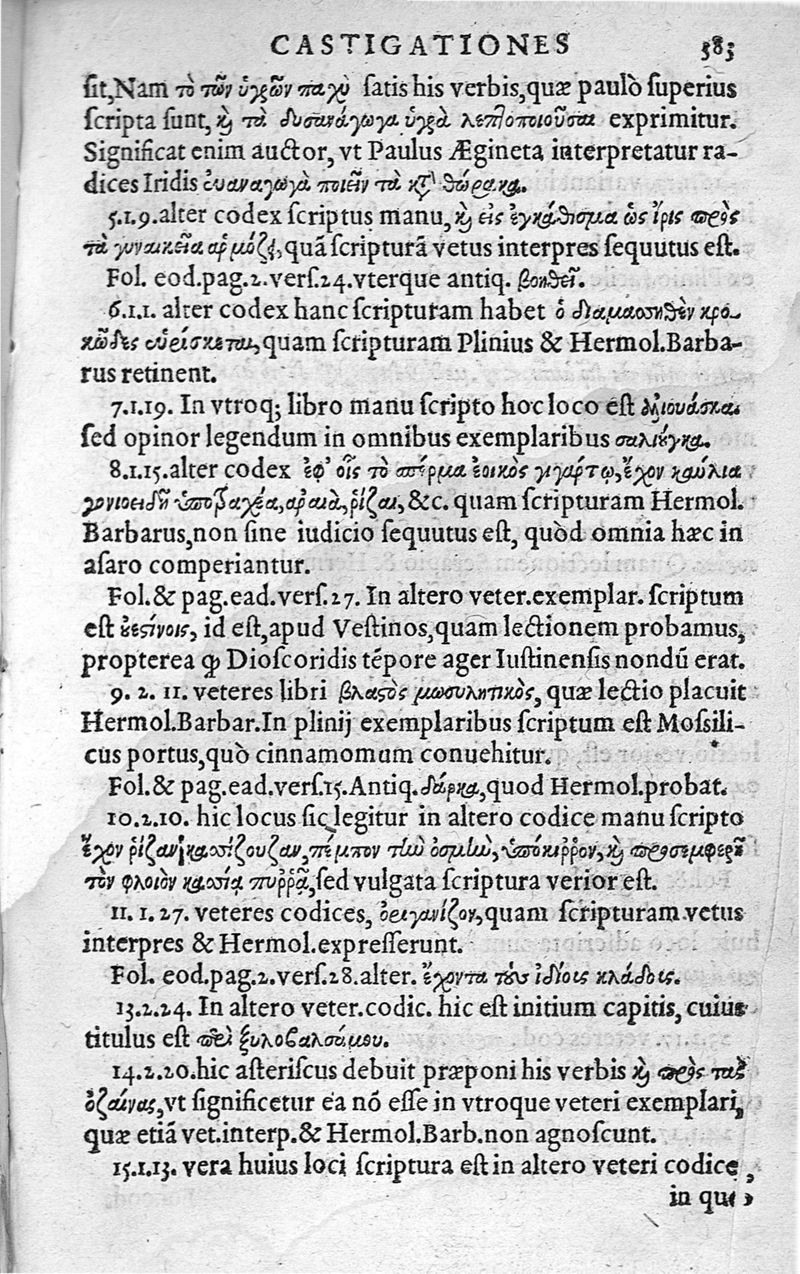 CASTIGATIONES 583
sit, Nam τὸ τῶν ὑγρῶν παχὺ satis his verbis, quæ paulò superius
scripta sunt, καὶ τὰ δυσανάγωγα ὑγρὰ λεπτοποιοῦσαι exprimitur.
Significat enim auctor, vt Paulus Ægineta interpretatur ra-
dices Iridis εὐαναγωγὰ ποιεῖν τὰ κατὰ θώρακα.
5.1.9. alter codex scriptus manu, καὶ εἰς ἐγκάθισμα ὡς ἶρις πρὸς
τὰ γυναικεῖα αρμόζει, quā scripturā vetus interpres sequutus est.
Fol. eod. pag. 2. vers. 24. vterque antiq. βοηθεῖ.
6.1.1. alter codex hanc scripturam habet ὁ διαμασηθὲν κρο-
κῶδες εὑρίσκεται, quam scripturam Plinius & Hermol. Barba-
rus retinent.
7.1.19. In vtroq; libro manu scripto hoc loco est
sed opinor legendum in omnibus exemplaribus σαλιύγκα.
8.1.15. alter codex ἐφ' οἷς τὸ σπέρμα ἐοικὸς γιγάρτῳ, ἔχον καύλια
γωνιοειδῆ ὑποτραχέα, αραιὰ, ῥίζαι, &c. quam scripturam Hermol.
Barbarus, non sine iudicio sequutus est, quòd omnia hæc in
asaro comperiantur.
Fol. & pag. ead. vers. 27. In altero veter. exemplar. scriptum
est οὐεστίνοις, id est, apud Vestinos, quam lectionem probamus,
propterea ꝙ Dioscoridis tēpore ager Iustinensis nondū erat.
9. 2. 11. veteres libri βλαστὸς μωσυλητικὸς, quæ lectio placuit
Hermol. Barbar. In plinij exemplaribus scriptum est Mossili-
cus portus, quò cinnamomum conuehitur.
Fol. & pag. ead. vers. 15. Antiq. δάρκα, quod Hermol. probat.
10.2.10. hic locus sic legitur in altero codice manu scripto
ἔχον ῥίζαν κασίζουζαν, πέμπον τὴν ὀσμὴν, ὑπόκιῤῥον, καὶ προσεμφερῆ
τὸν φλοιὸν κασίᾳ πυῤῥᾷ, sed vulgata scriptura verior est.
11. 1. 27. veteres codices, ὀριγανίζον, quam scripturam vetus
interpres & Hermol. expresserunt.
Fol. eod. pag. 2. vers. 28. alter. ἔχοντα τοὺς ἰδίοις κλάδοις.
13.2.24. In altero veter. codic. hic est initium capitis, cuius
titulus est περὶ ξυλοβαλσάμου.
14.2.20. hic asteriscus debuit præponi his verbis καὶ πρὸς τὰς
ὀζαίνας, vt significetur ea nō esse in vtroque veteri exemplari,
quæ etiā vet. interp. & Hermol. Barb. non agnoscunt.
15.1.13. vera huius loci scriptura est in altero veteri codice,
in quo